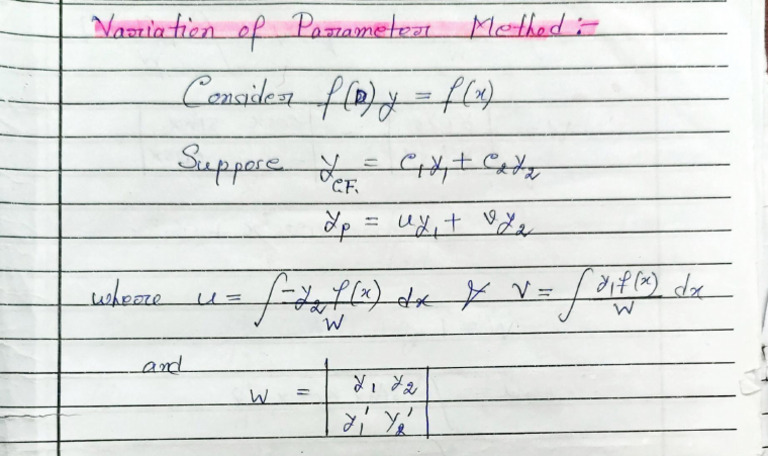 Variation of Parameter Method :-
Consider f(D)y = f(x)
Suppose y_{C.F.} = c₁y₁ + c₂y₂
y_p = uy₁ + vy₂
where u = ∫ -y₂ f(x)/W dx & v = ∫ y₁f(x)/W dx
and
W = | y₁ y₂ |
| y₁' y₂' |